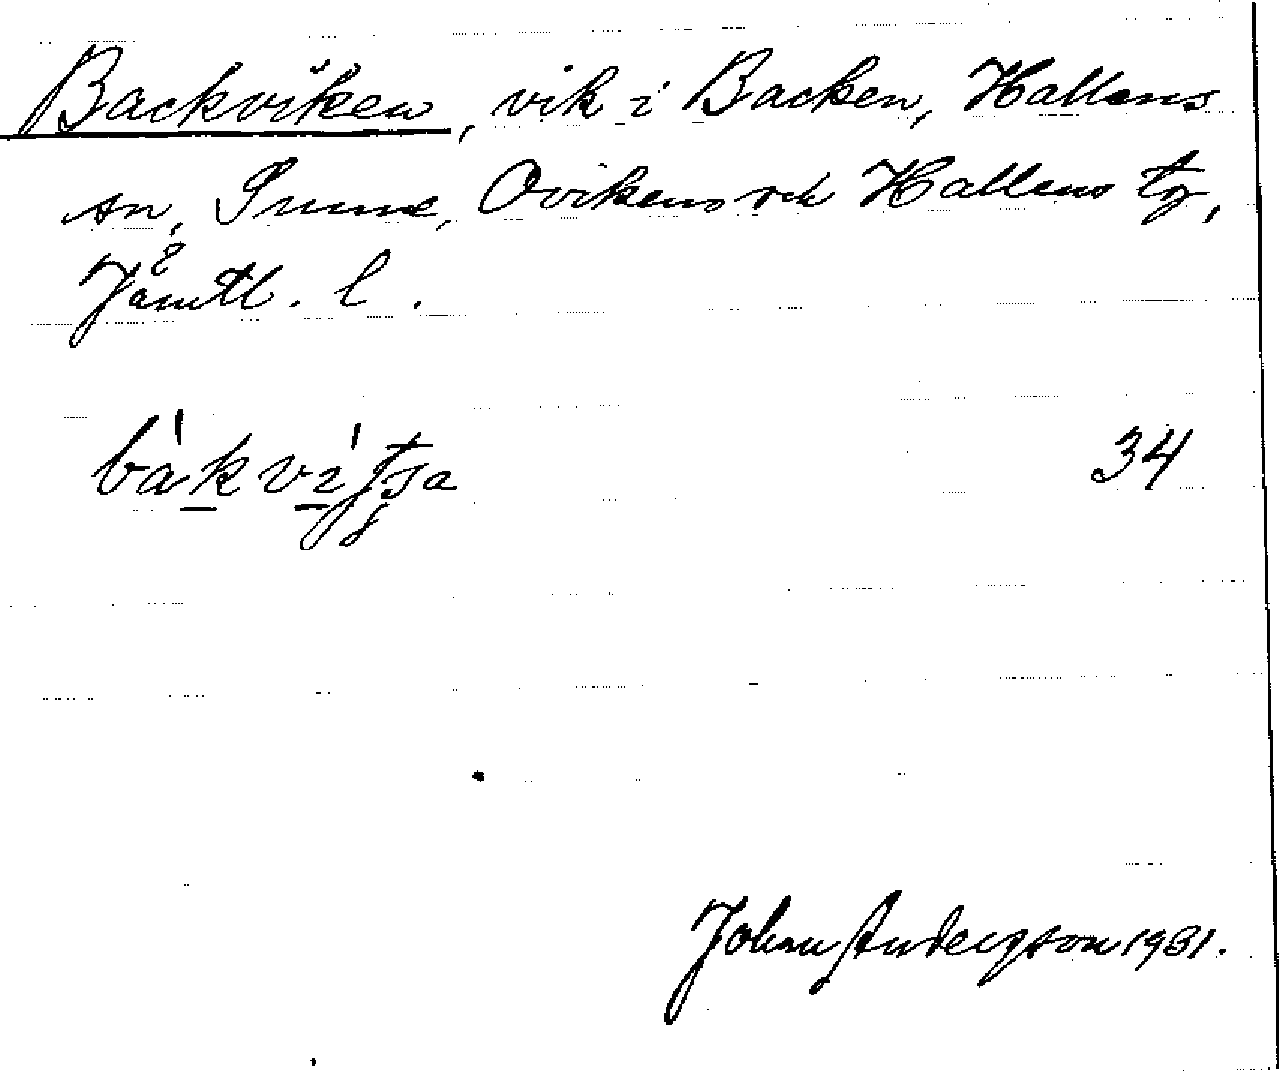 Backviken, vik i Backen, Hallens
sn, Sunne, Ovikens och Hallens tg,
Jämtl. l.
34
Johan Anderson 1931.